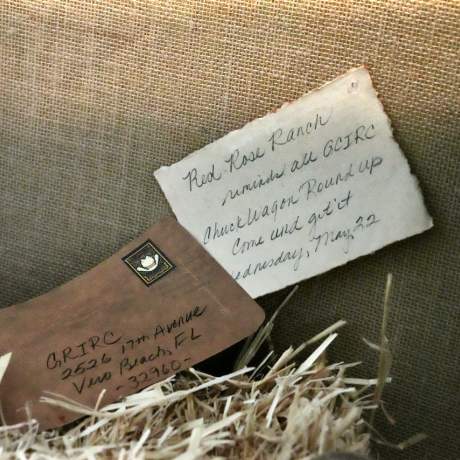 Red Rose Ranch
reminds all GCIRC
Chuckwagon Round up
Come und git'it
Wednesday, May, 22
GRIRC
2526 17th Avenue
Vero Beach, FL
-32960-